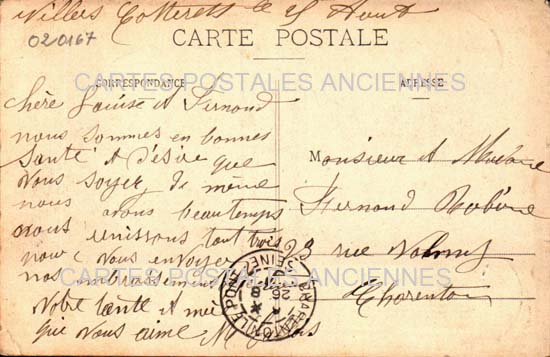 Villers Cotterets le 25 Aout
020167
CARTE POSTALE
CARTES POSTALES ANCIENNES
CORRESPONDANCE
ADRESSE
chère Louise et Fernand
nous sommes en bonnes
santé et désire que
vous soyez de même
nous avons beau temps
nous réunissons tout trois
pour vous envoyer
nos embrassement
Votre tante et mère
que vous aime
Monsieur et Madame
Fernand
23 rue Volney
Charenton
CARTES POSTALES ANCIENNES
CHARENTON LE PONT
SEINE